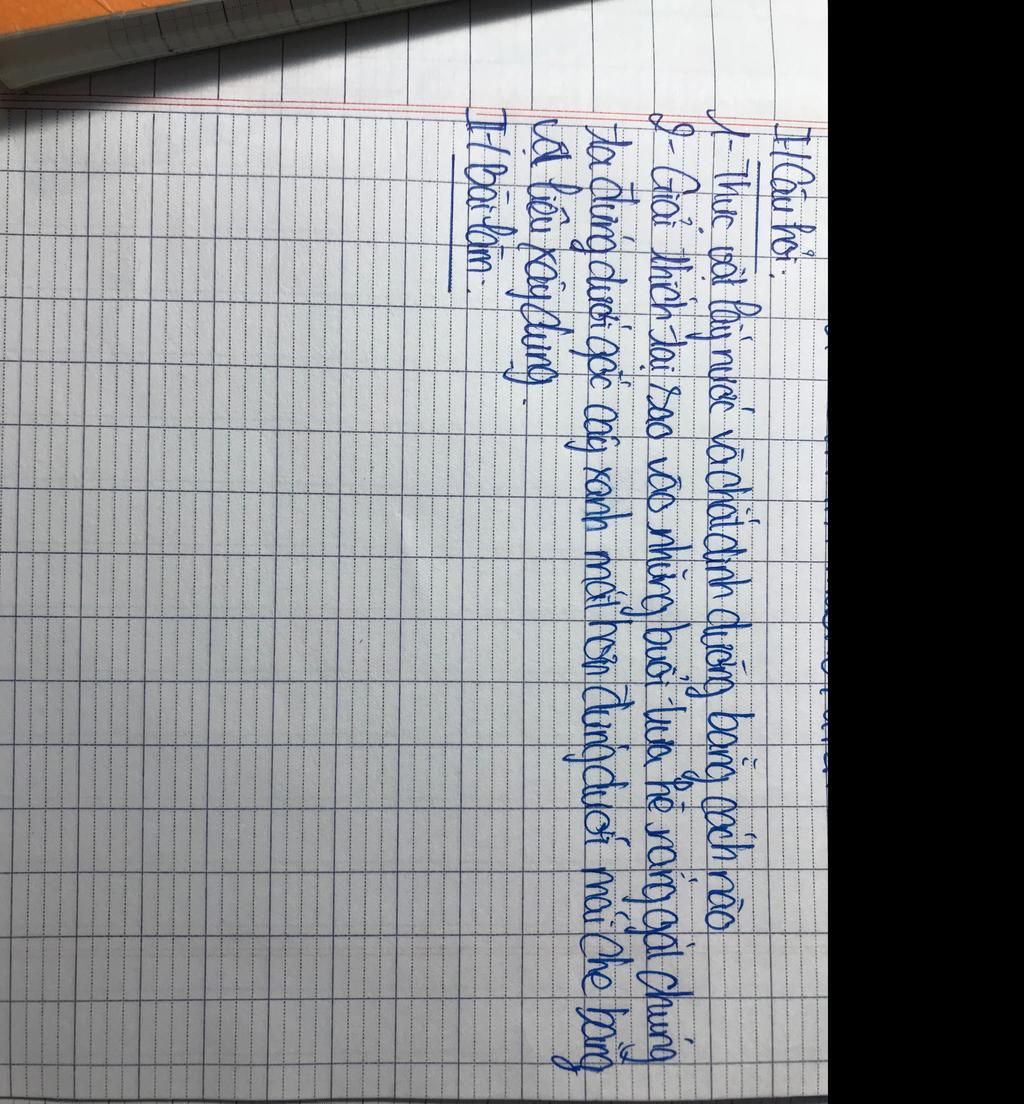 I-/ Câu hỏi.
1- Thực vật lấy nước và chất dinh dưỡng bằng cách nào
2- Giải thích tại sao vào những buổi trưa hè nắng gắt chúng
ta đứng dưới gốc cây xanh mát hơn đứng dưới mái che bằng
vật liệu xây dựng.
II-/ Bài làm.